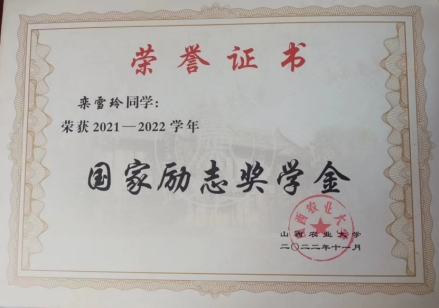 荣誉证书
栾雪玲同学：
荣获2021—2022学年
国家励志奖学金
山西农业大学
二〇二二年十一月